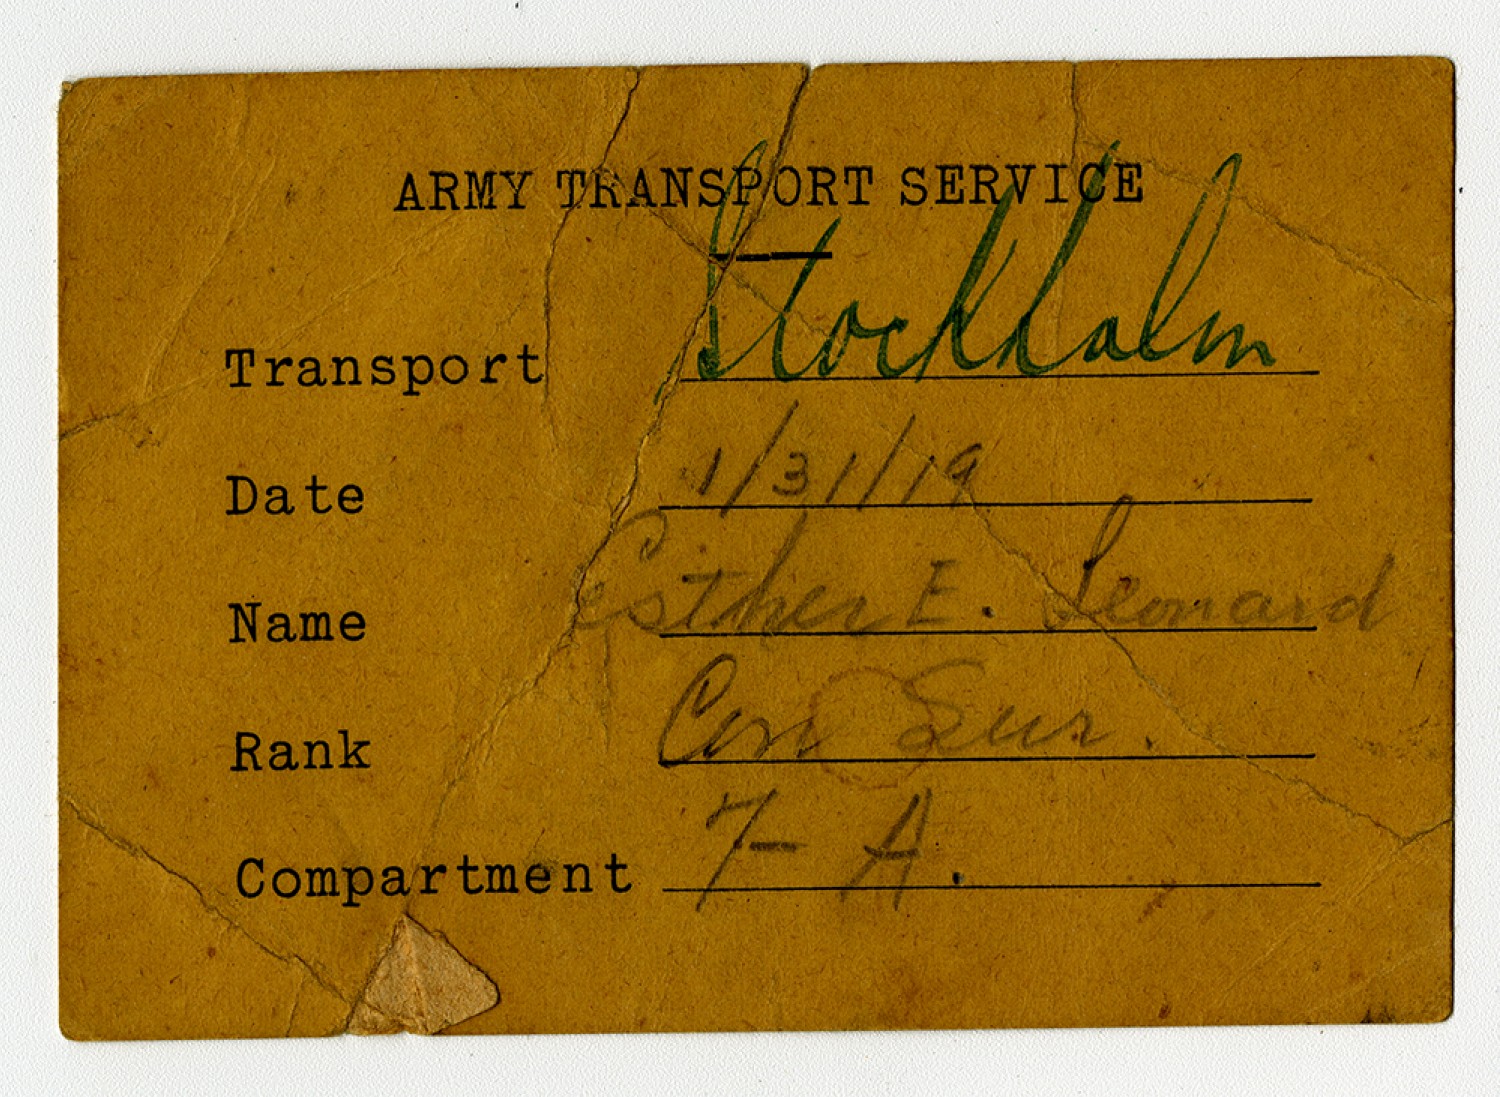 ARMY TRANSPORT SERVICE
Transport Stockholm
Date 1/31/19
Name Esther E. Leonard
Rank Con Sur.
Compartment 7- A.